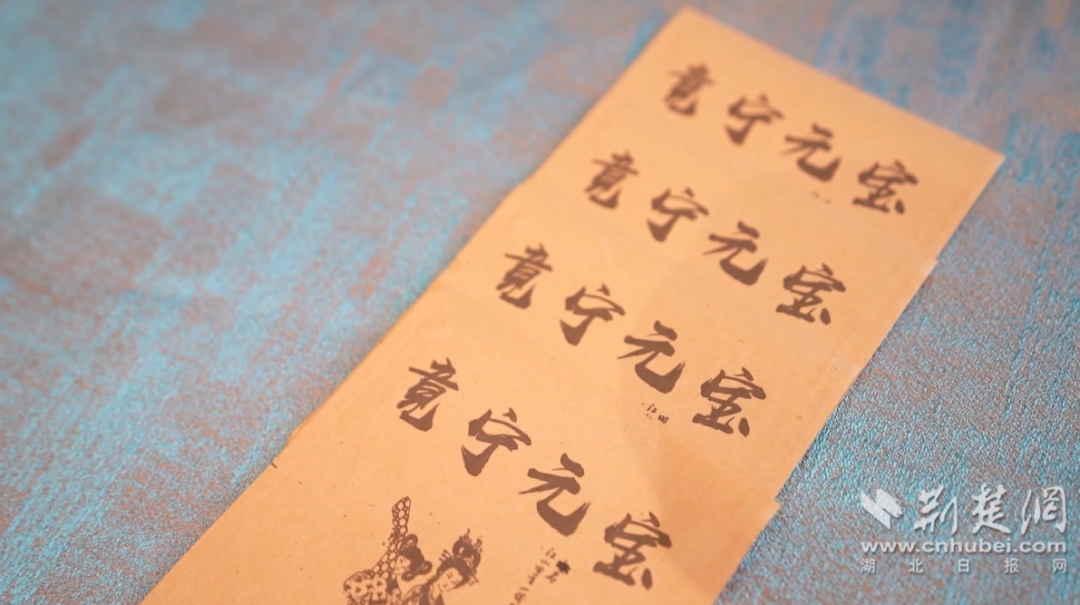 竟宁元宝
竟宁元宝
竟宁元宝
竟宁元宝
荆楚网
www.cnhubei.com
湖北日报网